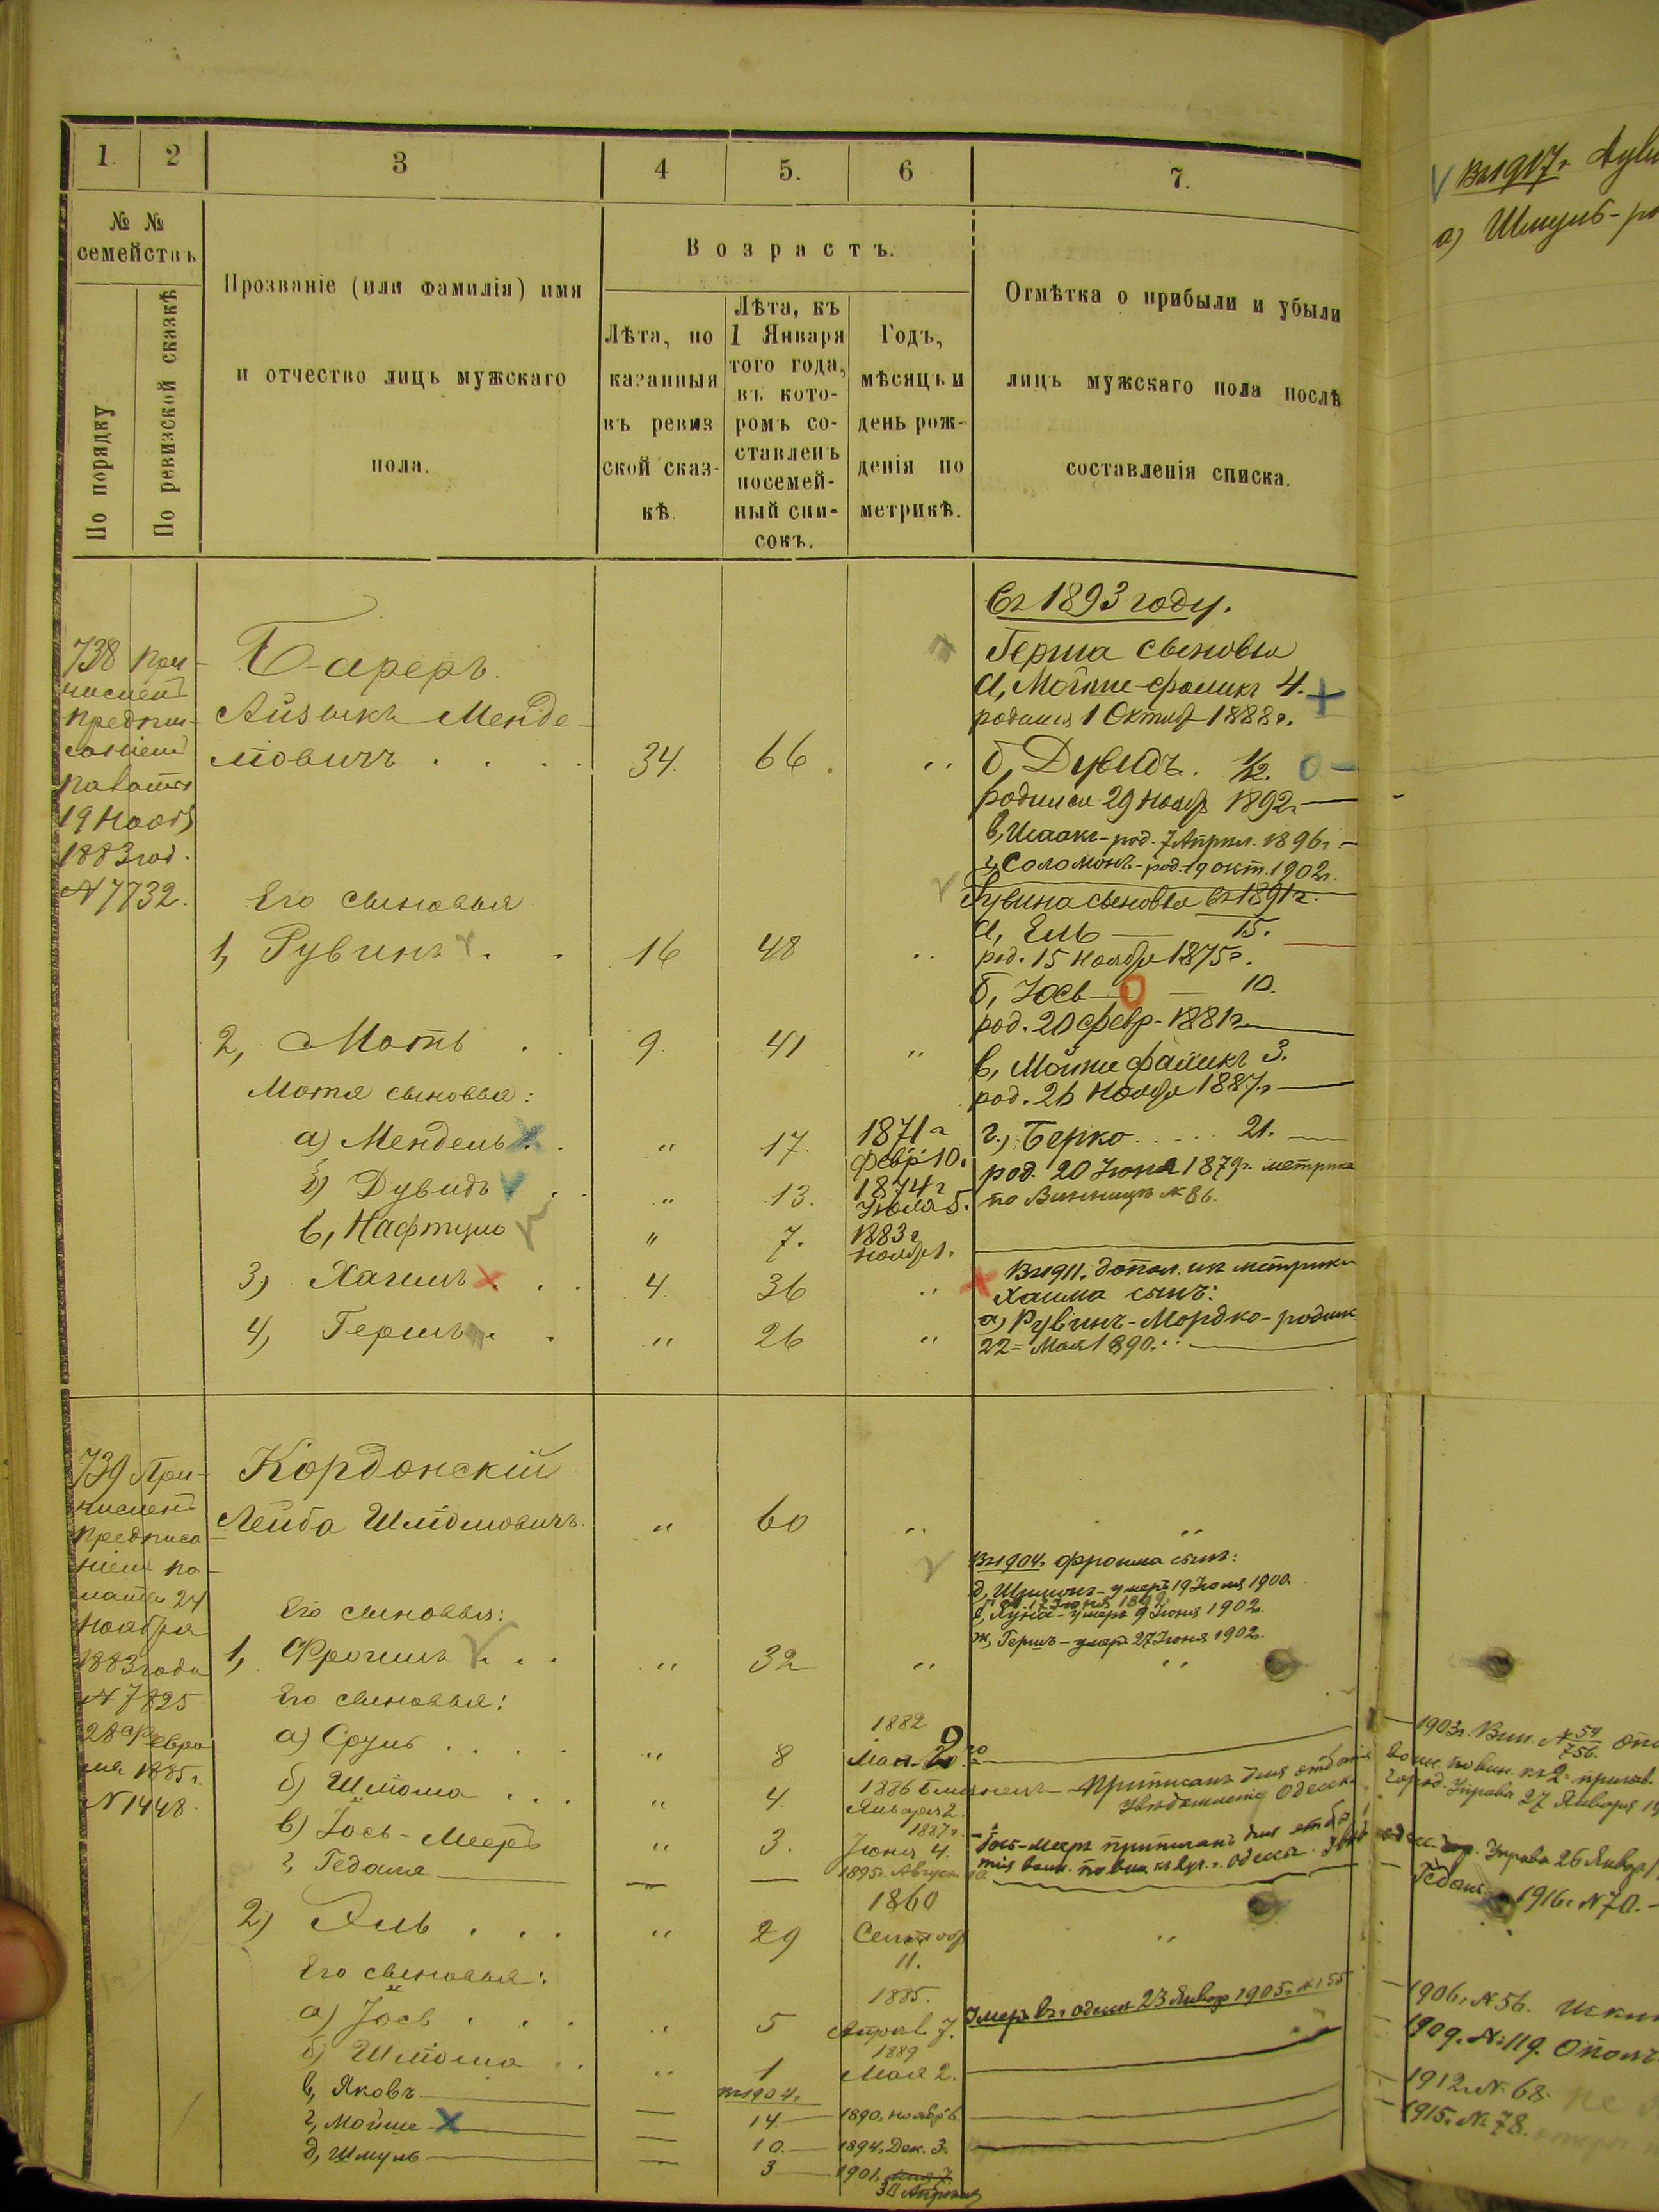 1. 2 3 4 5. 6 7.
№ № семействъ
По порядку
По ревизской сказкѣ
Прозваніе (или фамилія) имя
и отчество лицъ мужскаго
пола.
Возрастъ.
Лѣта, по
казанныя
въ ревиз
ской сказ-
кѣ.
Лѣта, къ
1 Января
того года,
въ кото-
ромъ со-
ставленъ
посемей-
ный спи-
сокъ.
Годъ,
мѣсяцъ и
день рож-
денія по
метрикѣ.
Отмѣтка о прибыли и убыли
лицъ мужскаго пола послѣ
составленія списка.
738 При-
численъ
предпи-
саніемъ
палаты
19 Нояб
1883 год.
№ 7732.
Бареръ.
Айзикъ Менде-
лювичъ 34. 66.
Его сыновья
1, Рувинъ 16 48
2, Мотъ 9. 41
Мотя сыновья:
а) Мендель " 17. 1871 г Февр 10.
б) Дувидъ " 13. 1874 г Іюля 5.
в, Нафтуло " 7. 1883 г Нояб 1.
3) Хаимъ 4. 36 "
4, Гершъ " 26 "
Въ 1893 году.
Герша сыновья
а, Мойше-Фаликъ 4.
родился 1 Октяб 1888 г.
б, Дувидъ. 1/2.
родился 29 Нояб 1892 г.
в, Исаакъ - род. 7 Април. 1896 г.
г, Соломонъ - род. 19 окт. 1902 г.
Рувина сыновья въ 1891 г.
а, Ель 15.
род. 15 Ноября 1875 г.
б, Іось 10.
род. 20 Февр. 1881 г.
в, Мойше Фаликъ 3.
род. 26 Ноября 1887 г.
г.) Берко 21.
род. 20 Іюня 1879 г. метрика
по Винницѣ № 86.
Въ 1911. допол. изъ метрики
Хаима сынъ:
а) Рувинъ-Мордко-родил
22 = Мая 1890.
739 При-
численъ
предписа-
ніемъ па-
латы 24
Ноября
1883 года
№ 7825
28 Февра
ля 1885 г.
№ 1448.
Кордонскій
Лейба Шліомовичъ. " 60 "
Его сыновья:
1, Фроимъ " 32 "
Его сыновья:
а) Сруль " 8 1882 Мая 2.
б) Шліома " 4. 1886 Января 2.
в) Іось-Мееръ " 3. 1887 г. Іюня 4.
г, Гедаля 1895 г. Август
2) Эль " 29 1860 Сентябр 11.
Его сыновья:
а) Іось " 5 1885. Апрѣл. 7.
б) Шліома " 1 1889 Мая 2.
Въ 1904 г.
в, Яковъ 14. 1890, ноябр 6.
г, Мойше 10. 1894, Дек. 3.
д, Шмуль 3 1901.
30 Апрѣля
Въ 1904. Фроима сын:
д, Шимонъ - умеръ 19 Іюля 1900.
умеръ 9 Іюня 1902.
ж, Гершъ - умер. 27 Іюня 1902 г.
Приписанъ для отбытія
Іось-Меер приписанъ для отбы
тія воин. повин. къ
Умеръ въ г. Одессѣ 23 Январ 1905 г.
Въ 1917 г.
а) Шмуль - ро
1903 г. Вин. № 54/756.
воин. повин. къ 2 призыв.
Город. Управа 27 Января
Управа 26 Января
1916 г. № 70.
1906, № 56.
1909. № 119.
1912. № 68.
1915. № 78.